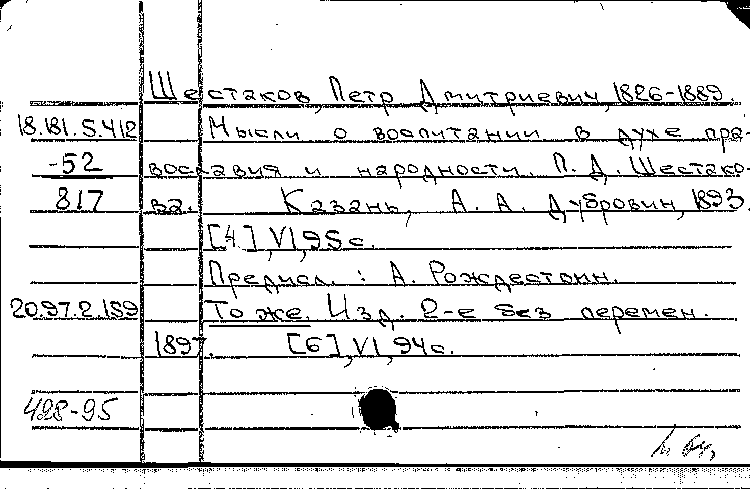 Шестаков, Петр Дмитриевич, 1826-1889.
18.181.5.412 Мысли о воспитании в духе пра-
-52 вославия и народности. П. Д. Шестако-
817 ва. Казань, А. А. Дубровин, 1893.
[4], VI, 95 с.
Предисл.: А. Рождествин.
20.97.2.159 То же. Изд. 2-е без перемен.
1897. [6], VI, 94 с.
428-95